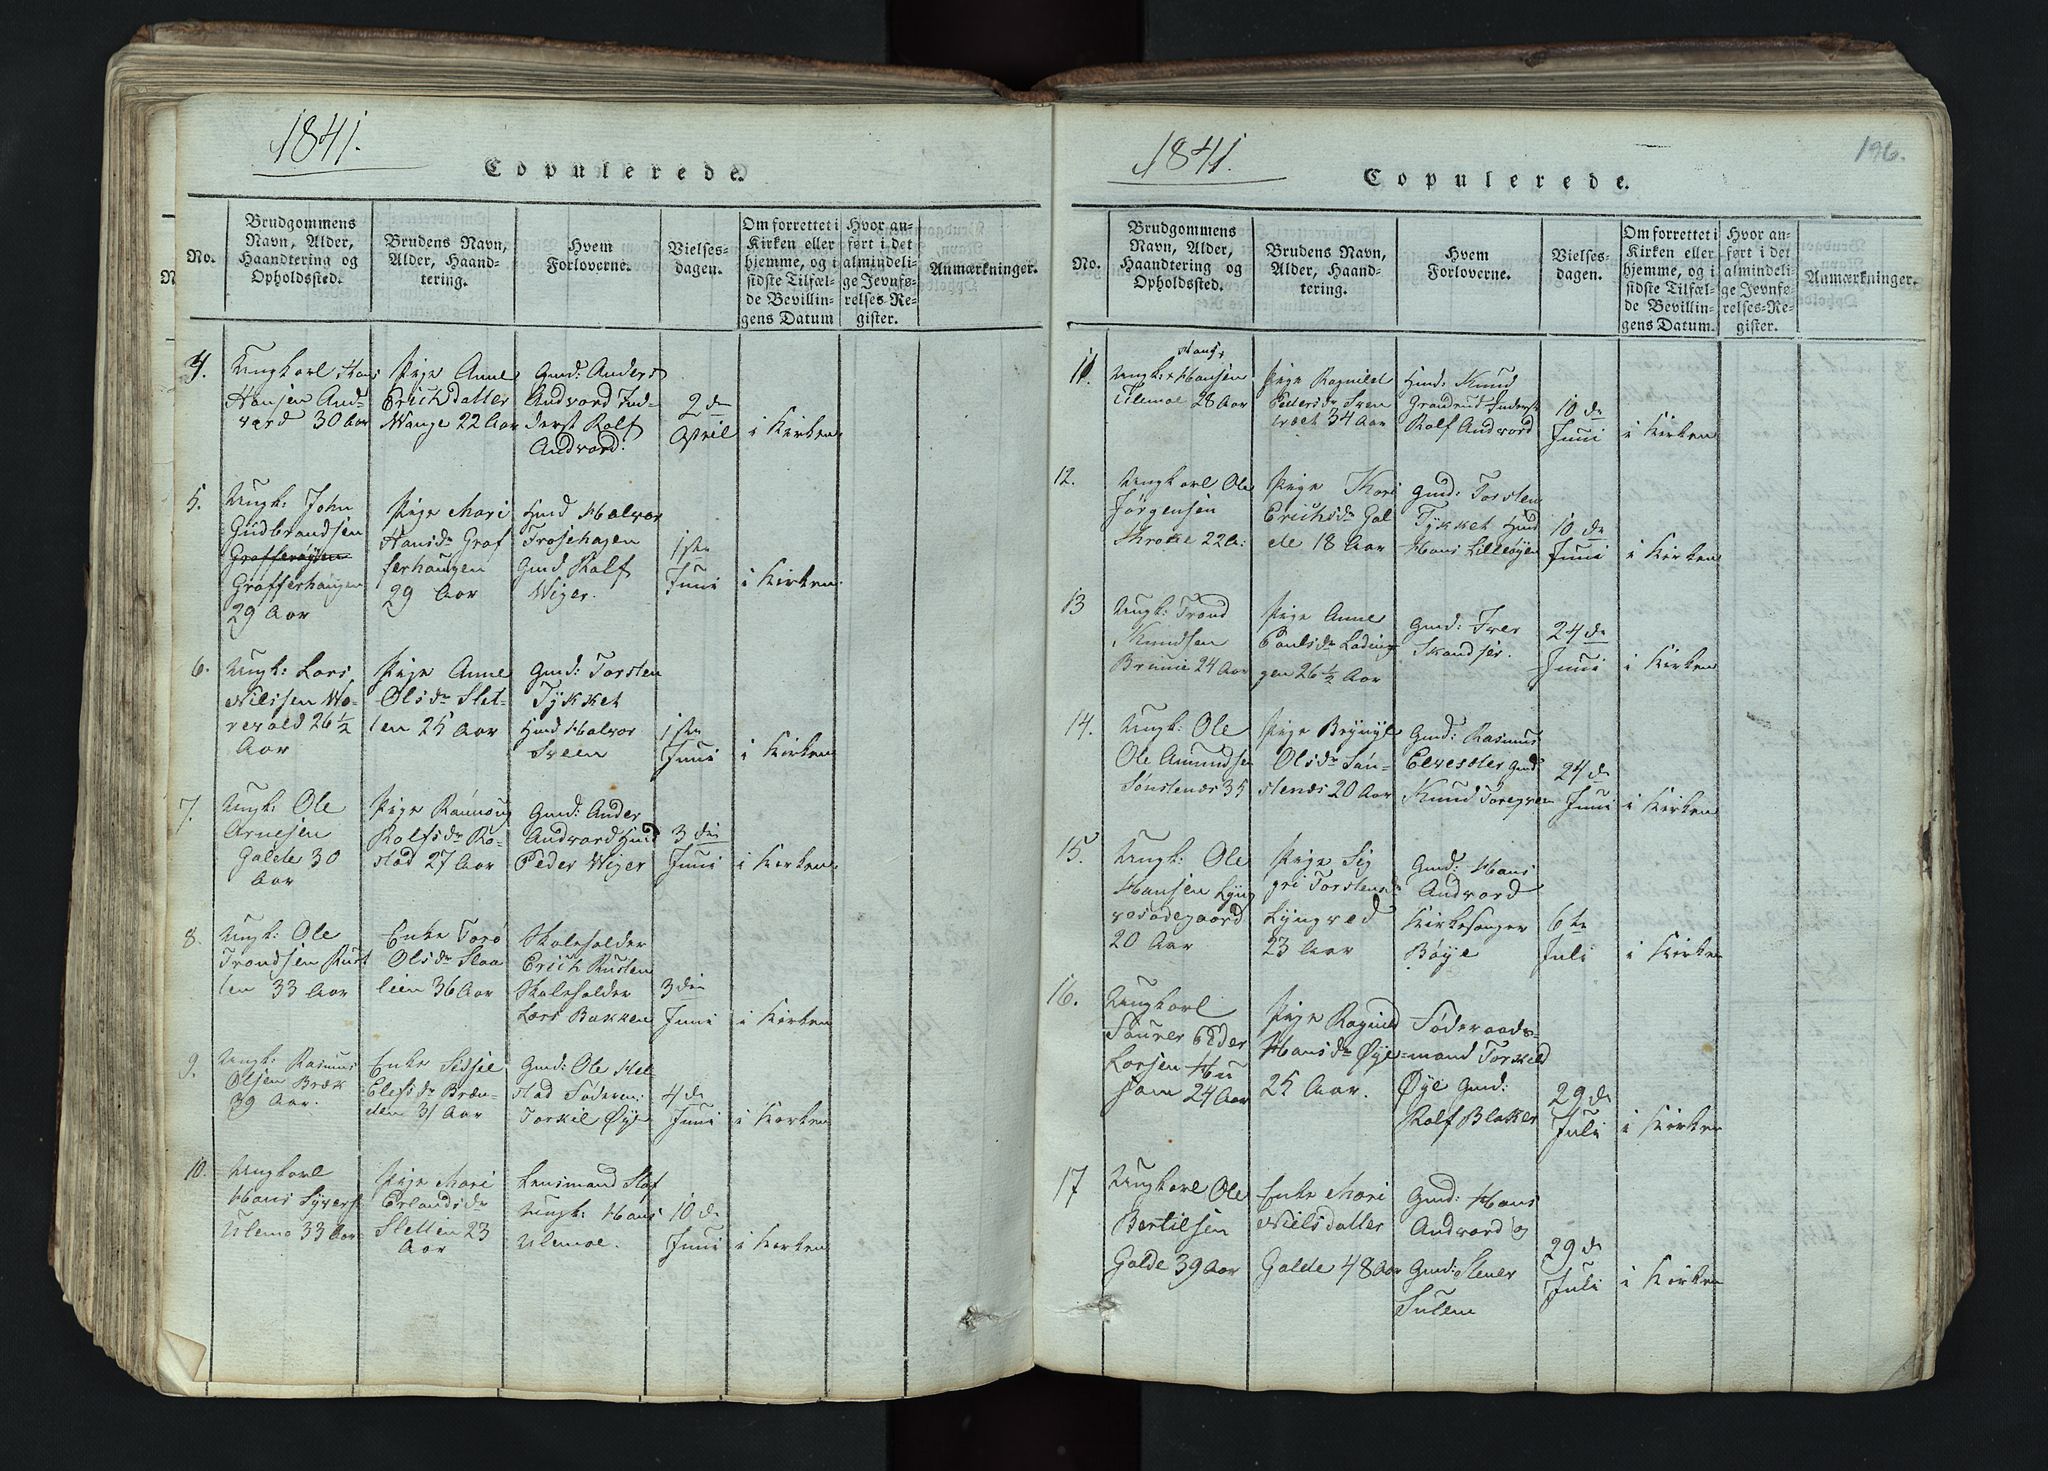 1841.
Copulerede.
No.
Brudgommens
Navn, Alder,
Haandtering og
Opholdssted.
Brudens Navn,
Alder, Haand-
tering.
Hvem
Forloverne.
Vielses-
dagen.
Om forrettet i
Kirken eller
hjemme, og i
sidste Tilfæl-
de Bevillin-
gens Datum
Hvor an-
ført i det
almindeli-
ge Jevnfø-
relses-Re-
gister.
Anmærkninger.
4.
Ungkarl Hans
Hansen And-
vord 30 Aar
Pige Anne
Erichdatter
Wange 22 Aar
Gmd: Anders
Andvord Ind-
derst Rolf
Andvord.
2 den
April
i Kirken
5.
Ungk: John
Gudbrandsen
Grafferhaugen
29 Aar
Pige Mari
Hansdr Graf
ferhaugen
29 Aar
Hmd Halvor
Trosehagen
Gmd Rolf
Wiger.
1ste
Juni
i Kirken
6.
Ungk: Lars
Nielsen Wo-
revold 26 1/2
Aar
Pige Anne
Olsdr Slet-
ten 25 Aar
Gmd: Torsten
Tykket
Hmd Halvor
Sveen
1ste
Juni
i Kirken
7.
Ungk: Ole
Arnesen
Galde 30
Aar
Pige Rannoug
Rolfsdr Ro-
stad 27 Aar
Gmd: Ander
Andvord Hmd
Peder Wiger
3 die
Juni
i Kirken
8.
Ungk: Ole
Trondsen Rust
len 33 Aar
Enke Torø
Olsdr Slaa
lien 36 Aar
Skoleholder
Erich Rusten
Skoleholder
Lars Bakken
3 die
Juni
i Kirken
9.
Ungk: Rasmus
Olsen Bræk
39 Aar.
Enke Sidsel
Elefsdr Bræn-
den 31 Aar
Gmd: Ole Mel
stad Søderm:
Torkil Øye
4 de
Juni
i Kirken
10.
Ungkarl
Hans Syvers:
Ulemo 33 Aar
Pige Mari
Erlandsdr
Sletten 23
Aar
Lensmand Slaf
Ungk: Hans
Ulemoe.
10 de
Juni
i Kirken
1841.
196.
Copulerede.
No.
Brudgommens
Navn, Alder,
Haandtering og
Opholdssted.
Brudens Navn,
Alder, Haand-
tering.
Hvem
Forloverne.
Vielses-
dagen.
Om forrettet i
Kirken eller
hjemme, og i
sidste Tilfæl-
de Bevillin-
gens Datum.
Hvor an-
ført i det
almindeli-
ge Jevnfø-
relses-Re-
gister.
Anmærkninger.
11.
Hans
Ungk: Hansen
Ulemoe 28 Aar
Pige Ragnild
Pedersdr Sven
34 Aar
Hmd: Knud
Granrud Inderst
Rolf Andvord
10 de
Juni
i Kirken
12.
Ungkarl Ole
Jørgensen
22 A:
Pige Mari
Erichsdr Gal
de 18 Aar
Gmd: Torsten
Tykket Hmd
Hans Lilleøyen
10 de
Juni
i Kirken
13
Ungk: Trond
Knudsen
Brune 24 Aar
Pige Anne
Poulsdr Lading
gen 26 1/2 Aar
Gmd: Iver
Skandser.
24 de
Juni
i Kirken
14.
Ungk: Ole
Ole Amundsen
Sønstenæs 35
Pige Bryngl
Olsdr Søn-
stenæs 20 Aar
Gmd: Rasmus
Elvesæter Gmd
Knud
24 de
Juni
i Kirken
15.
Ungk: Ole
Hansen Lyng
vosødegaard
20 Aar
Pige Sig
gri Torstensdr
Lyngved
23 Aar
Gmd: Hans
Andvord
Kirkesanger
Bøye
6te
Juli
i Kirken
16.
Ungkarl
Peder
Larsen Hu
som 24 Aar
Pige Ragnild
Hansdr Øye
25 Aar.
Søderaads-
mand Torkild
Øye Gmd:
Rolf Blaker
29 de
Juli
i Kirken
17
Ungkarl Ole
Bertilsen
Galde 39 Aar
Enke Mari
Nielsdatter
Galde 48 Aar
Gmd: Hans
Andvord og
Gmd: Stener
Sulem
29 de
Juli
i Kirken